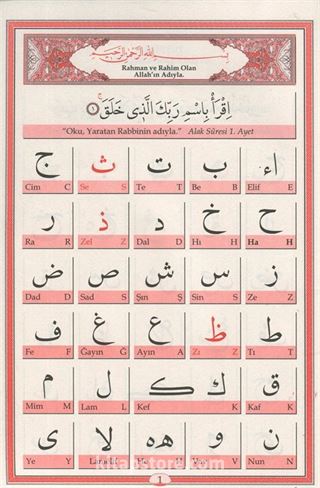 بِسْمِ اللهِ الرَّحْمٰنِ الرَّحِيمِ
Rahman ve Rahim Olan
Allah'ın Adıyla.
اِقْرَأْ بِاسْمِ رَبِّكَ الَّذٖى خَلَقَ ١
"Oku, Yaratan Rabbinin adıyla." Alak Sûresi 1. Ayet
اء ب ت ث ج
Cim C Se S Te T Be B Elif E
ح خ د ذ ر
Ra R Zel Z Dal D Hı H Ha H
ز س ش ص ض
Dad D Sad S Şın Ş Sin S Ze Z
ط ظ ع غ ف
Fe F Gayın Ğ Ayın A Zı Z Tı T
ق ك ک ل م
Mim M Lam L Kef K Kaf K
ن و ه ه لا ى
Ye Y Lamelif Nun N
kitapstore.com
1